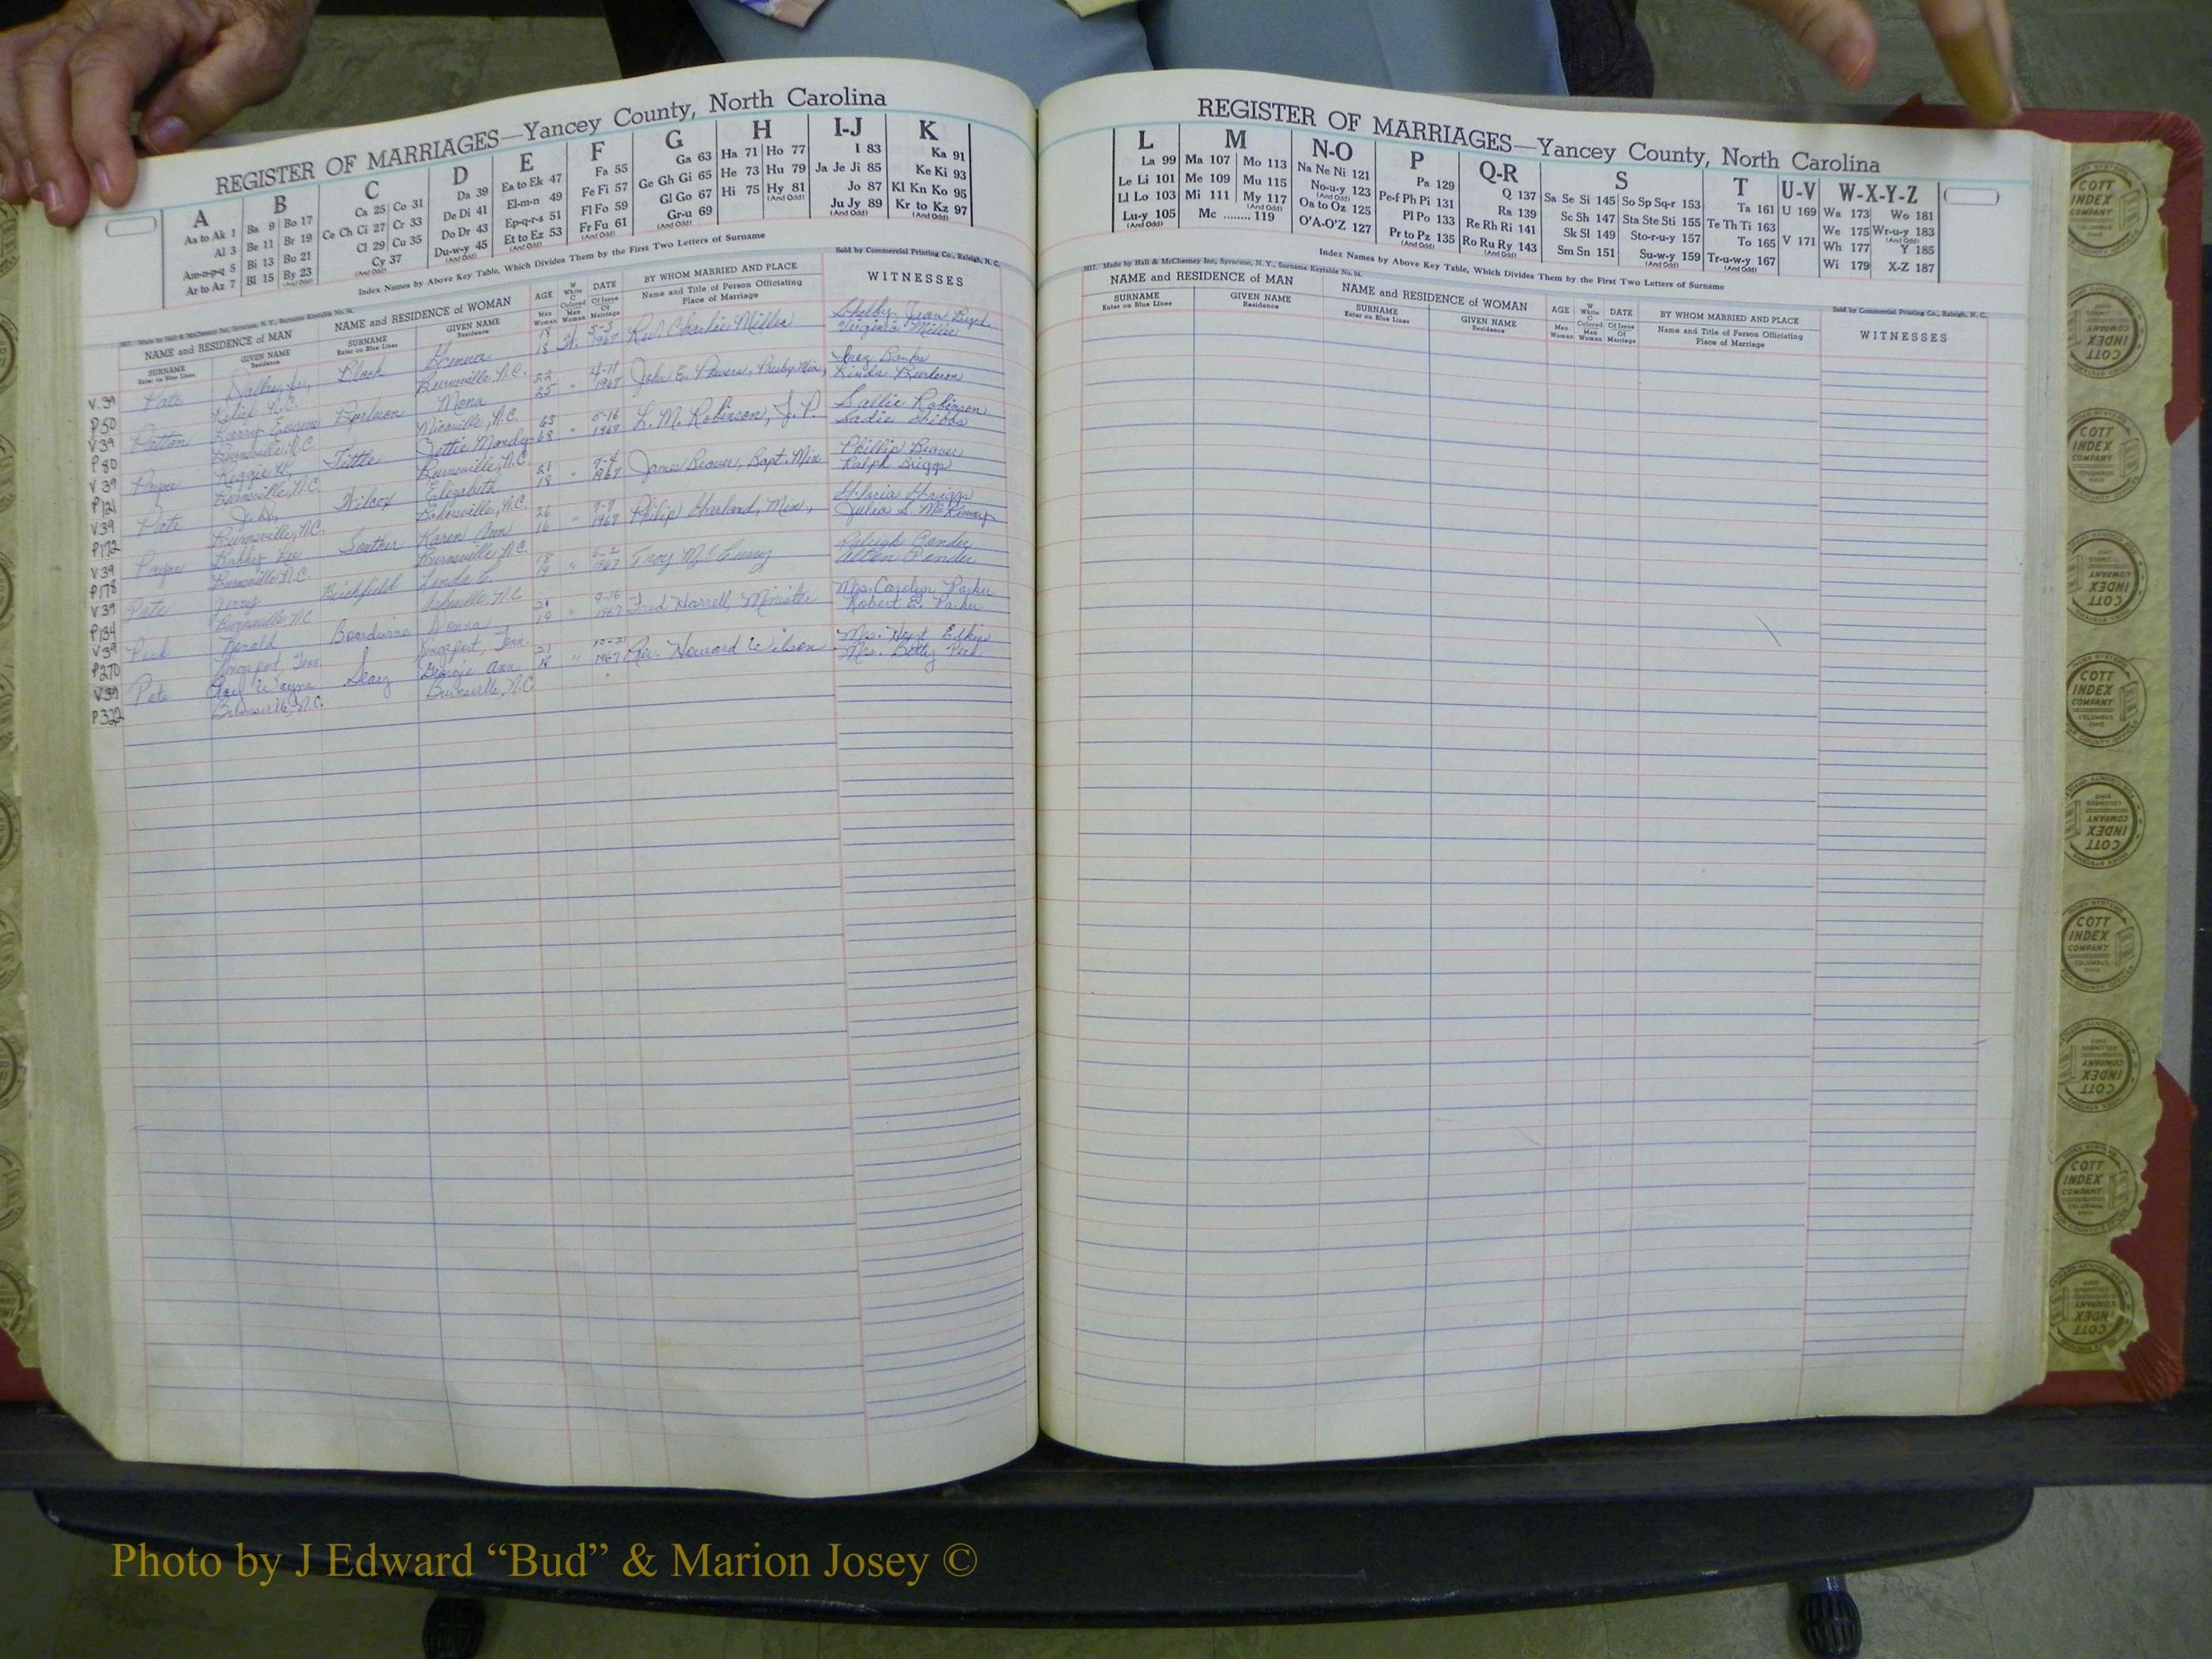 REGISTER OF MARRIAGES—Yancey County, North Carolina
A B C D E F G H I-J K
Aa to Ak 1 Ba 9 Bo 17 Ca 25 Co 31 Da 39 Ea to Ek 47 Fa 55 Ga 63 Ha 71 Ho 77 I 83 Ka 91
Al 3 Be 11 Br 19 Ce Ch Ci 27 Cr 33 De Di 41 El-m-n 49 Fe Fi 57 Ge Gh Gi 65 He 73 Hu 79 Ja Je Ji 85 Ke Ki 93
Am-n-p-q 5 Bi 13 Bu 21 Cl 29 Cu 35 Do Dr 43 Ep-q-r-s 51 Fl Fo 59 Gl Go 67 Hi 75 Hy 81 (And Odd) Jo 87 Kl Kn Ko 95
Ar to Az 7 Bl 15 By 23 (And Odd) Cy 37 (And Odd) Du-w-y 45 (And Odd) Et to Ez 53 (And Odd) Fr Fu 61 (And Odd) Gr-u 69 (And Odd) Ju Jy 89 (And Odd) Kr to Kz 97 (And Odd)
Index Names by Above Key Table, Which Divides Them by the First Two Letters of Surname
Made by Hall & McChesney Inc, Syracuse, N. Y., Surname Keytable No. 94.
Sold by Commercial Printing Co., Raleigh, N. C.
NAME and RESIDENCE of MAN NAME and RESIDENCE of WOMAN AGE W White C Colored DATE BY WHOM MARRIED AND PLACE WITNESSES
SURNAME Enter on Blue Lines GIVEN NAME Residence SURNAME Enter on Blue Lines GIVEN NAME Residence Man Woman Man Woman Of Issue Of Marriage Name and Title of Person Officiating Place of Marriage
V.39 Pate Dallas, Jr., Block 18 W. 5-3 Rev. Charlie Miller Shelby Jean Boyd
P50 N.C. Burnsville N.C. 18 1967 Virginia Miller
V39 Patton Larry Eugene Burleson Mona 22 " John E. Powers, Presby. Min, Banks
P80 Burnsville, N.C. Micaville, N.C. 25 1967 Linda Burleson
V39 Payne Tittle 63 " 5-16 L. M. Robinson, J. P. Sallie Robinson
P121 Burnsville, N.C. Burnsville, N.C. 68 1967 Sadie
V39 Pate Wilcox Elizabeth 21 " James Beaver, Bapt. Min Phillip Beaver
P172 Burnsville, N.C. Bakersville, N.C. 18 1967 Ralph Griggs
V39 Payne Bobby Souther Karen Ann 26 " 1967 Philip Min, Gloria Griggs
P178 Burnsville N.C. Burnsville N.C. 16 Julia S. McKinney
V39 Pate Jerry Birchfield Linda 18 " 6-2 Troy McCurry Ponder
P134 Burnsville N.C. Asheville N.C. 19 1967 Ponder
V39 Peck Donald Donna 21 " 9-16 Fred Harrell, Minister Mrs. Carolyn Parker
P270 Kingsport, Tenn. Kingsport, Tenn. 19 1967 Robert E. Parker
V39 Pate Wayne Georgie Ann 21 " Rev. Howard Wilson Mrs.
P322 Burnsville, N.C. Burnsville, N.C. 18 1967 Mrs. Betty Peek
REGISTER OF MARRIAGES—Yancey County, North Carolina
L M N-O P Q-R S T U-V W-X-Y-Z
La 99 Ma 107 Mo 113 Na Ne Ni 121 Pa 129 Q 137 Sa Se Si 145 So Sp Sq-r 153 Ta 161 U 169 Wa 173 Wo 181
Le Li 101 Me 109 Mu 115 No-u-y 123 (And Odd) Pe-f Ph Pi 131 Ra 139 Sc Sh 147 Sta Ste Sti 155 Te Th Ti 163 We 175 Wr-u-y 183 (And Odd)
Ll Lo 103 Mi 111 My 117 (And Odd) Oa to Oz 125 Pl Po 133 Re Rh Ri 141 Sk Sl 149 Sto-r-u-y 157 To 165 V 171 Wh 177 Y 185
Lu-y 105 Mc ........ 119 O'A-O'Z 127 Pr to Pz 135 (And Odd) Ro Ru Ry 143 (And Odd) Sm Sn 151 Su-w-y 159 (And Odd) Tr-u-w-y 167 (And Odd) Wi 179 X-Z 187
Index Names by Above Key Table, Which Divides Them by the First Two Letters of Surname
Made by Hall & McChesney Inc, Syracuse, N. Y., Surname Keytable No. 94.
Sold by Commercial Printing Co., Raleigh, N. C.
NAME and RESIDENCE of MAN NAME and RESIDENCE of WOMAN AGE W White C Colored DATE BY WHOM MARRIED AND PLACE WITNESSES
SURNAME Enter on Blue Lines GIVEN NAME Residence SURNAME Enter on Blue Lines GIVEN NAME Residence Man Woman Man Woman Of Issue Of Marriage Name and Title of Person Officiating Place of Marriage
COTT INDEX COMPANY COLUMBUS OHIO
Photo by J Edward “Bud” & Marion Josey ©